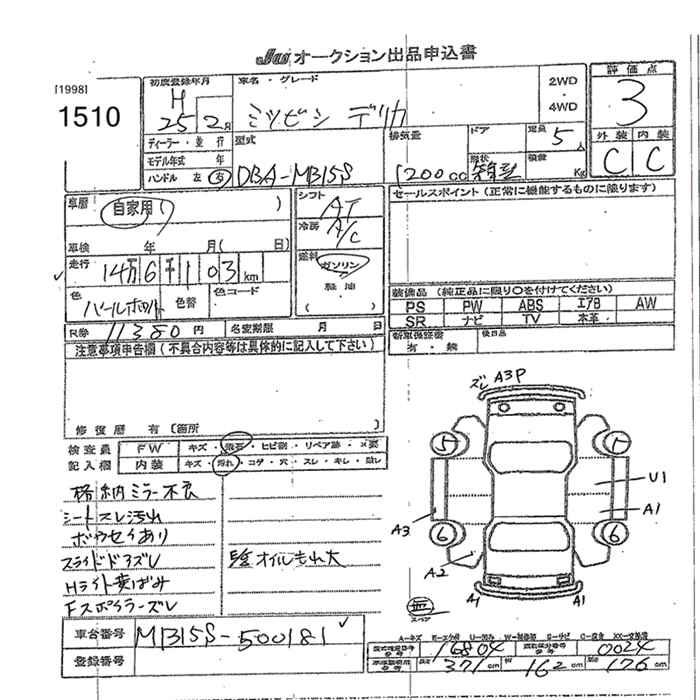 JU オークション出品申込書
[1998]
1510
初度登録年月
H 25 2月
車名・グレード
ミツビシ デリカ
2WD
・
4WD
評価点
3
外装 内装
C C
ディーラー・並行
モデル年式 年
ハンドル 左 右
型式
DBA-MB15S
排気量
1200cc
ドア
形状
箱型
定員 5人
積載 Kg
車歴
自家用( )
車検 年 月( 日)
走行
14万6千103km
色
パールホワイト
色替
色コード
R券 11380円
名変期限 月 日
シフト
AT
冷房
A/C
燃料
ガソリン
軽油
セールスポイント(正常に機能するものに限ります)
装備品(純正品に限り○を付けてください)
PS PW ABS エアB AW
SR ナビ TV 本革
新車保証書
有・無
後日品
注意事項申告欄(不具合内容等は具体的に記入して下さい)
修復歴 有〔箇所 〕
検査員
記入欄
FW キズ・飛石・ヒビ割・リペア跡・×要
内装 キズ・汚れ・コゲ・穴・スレ・キレ・
格納ミラー不良
シートスレ汚れ
ボウセイあり
スライドドアズレ
Hライト黄ばみ
Fスポイラーズレ
オイルもれ大
ズレ A3P
5 5
U1
A1
A3
6 6
A2
A1 A1
スペア
車台番号 MB15S-500181
登録番号
A-キズ
16804
0024
長さ 371cm 幅 162cm 高さ 176cm